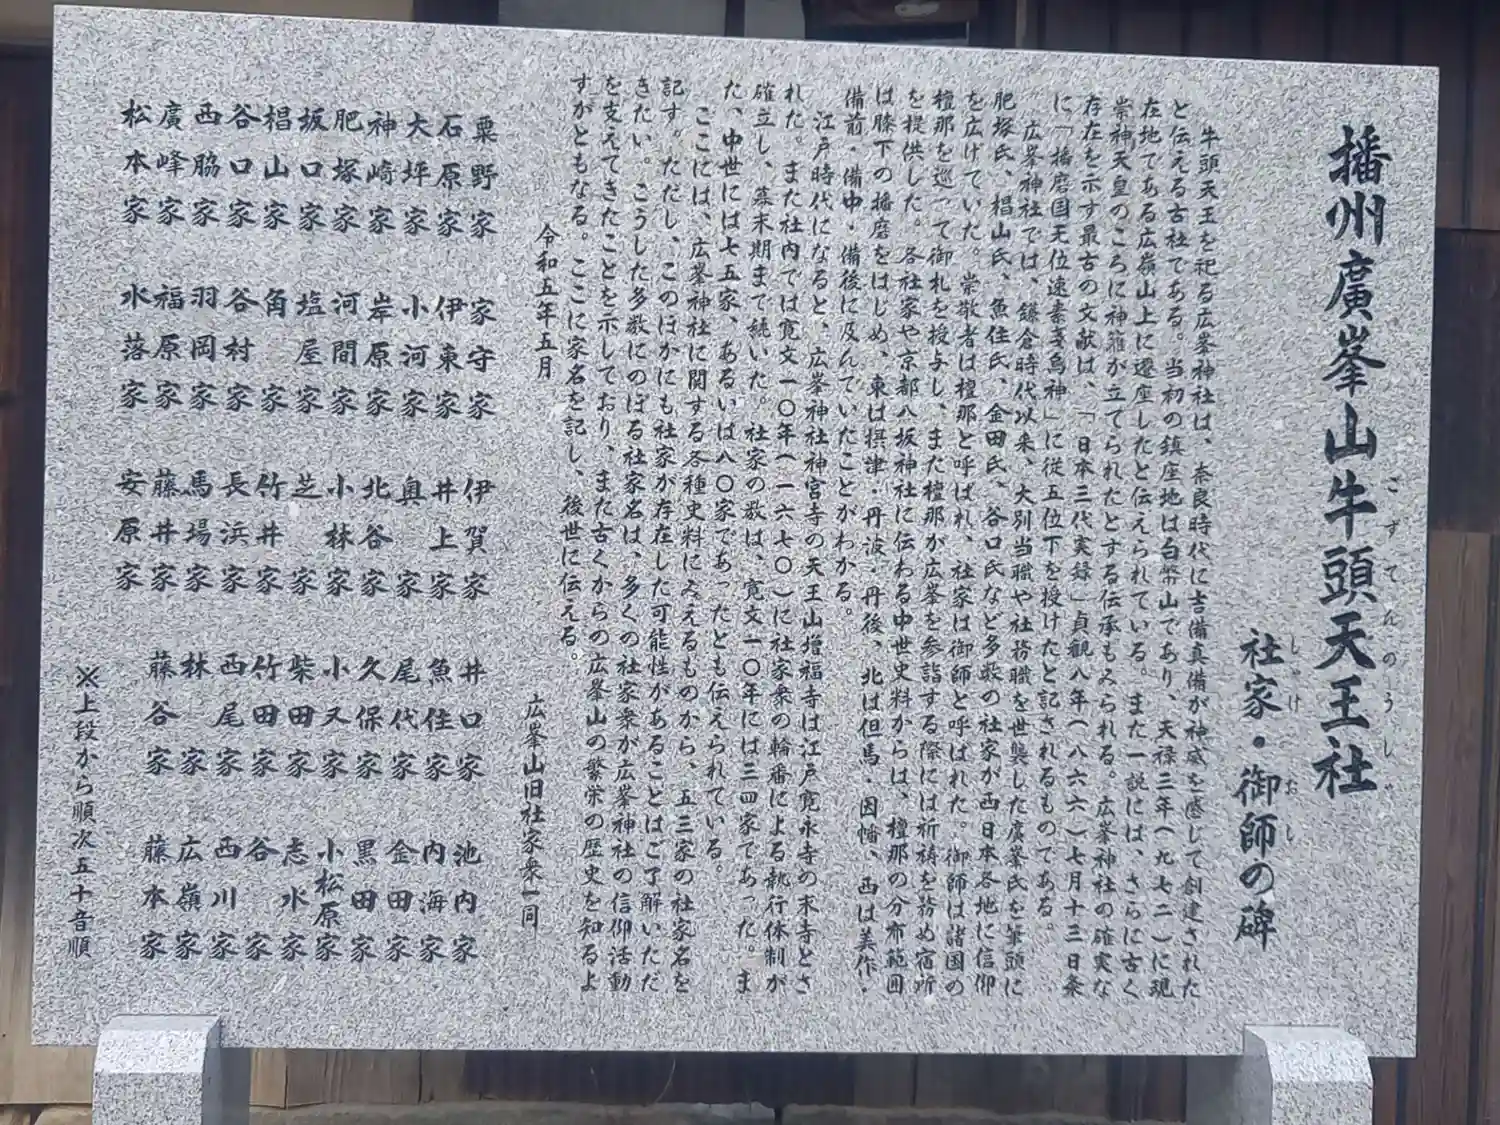 播州廣峯山牛頭天王社
ごずてんのうしゃ
社家・御師の碑
しゃけ おし
牛頭天王を祀る広峯神社は、奈良時代に吉備真備が神威を感じて創建された
と伝える古社である。当初の鎮座地は白幣山であり、天禄三年(九七二)に現
在地である広嶺山上に遷座したと伝えられている。また一説には、さらに古く
崇神天皇のころに神籬が立てられたとする伝承もみられる。広峯神社の確実な
存在を示す最古の文献は、「日本三代実録」貞観八年(八六六)七月十三日条
に「播磨国无位速素戔烏神」に従五位下を授けたと記されるものである。
広峯神社では、鎌倉時代以来、大別当職や社務職を世襲した廣峯氏を筆頭に
肥塚氏、椙山氏、魚住氏、金田氏、谷口氏など多数の社家が西日本各地に信仰
を広げていた。崇敬者は檀那と呼ばれ、社家は御師と呼ばれた。御師は諸国の
檀那を巡って御札を授与し、また檀那が広峯を参詣する際には祈祷を務め宿所
を提供した。各社家や京都八坂神社に伝わる中世史料からは、檀那の分布範囲
は膝下の播磨をはじめ、東は摂津・丹波・丹後、北は但馬・因幡、西は美作・
備前・備中・備後に及んでいたことがわかる。
江戸時代になると、広峯神社神宮寺の天王山増福寺は江戸寛永寺の末寺とさ
れた。また社内では寛文一〇年(一六七〇)に社家衆の輪番による執行体制が
確立し、幕末期まで続いた。社家の数は、寛文一〇年には三四家であった。ま
た、中世には七五家、あるいは八〇家であったとも伝えられている。
ここには、広峯神社に関する各種史料にみえるものから、五三家の社家名を
記す。ただし、このほかにも社家が存在した可能性があることはご了解いただ
きたい。こうした多数にのぼる社家名は、多くの社家衆が広峯神社の信仰活動
を支えてきたことを示しており、また古くからの広峯山の繁栄の歴史を知るよ
すがともなる。ここに家名を記し、後世に伝える。
令和五年五月
広峯山旧社家衆一同
粟野家 家守家 伊賀家 井口家 池内家
石原家 伊東家 井上家 魚住家 内海家
大坪家 小河家 奥家 尾代家 金田家
神崎家 岸原家 北谷家 久保家 黒田家
肥塚家 河間家 小林家 小又家 小松原家
坂口家 塩屋家 芝家 柴田家 志水家
椙山家 角家 竹井家 竹田家 谷家
谷口家 谷村家 長浜家 西尾家 西川家
西脇家 羽岡家 馬場家 林家 広嶺家
廣峰家 福原家 藤井家 藤谷家 藤本家
松本家 水落家 安原家
※上段から順次五十音順